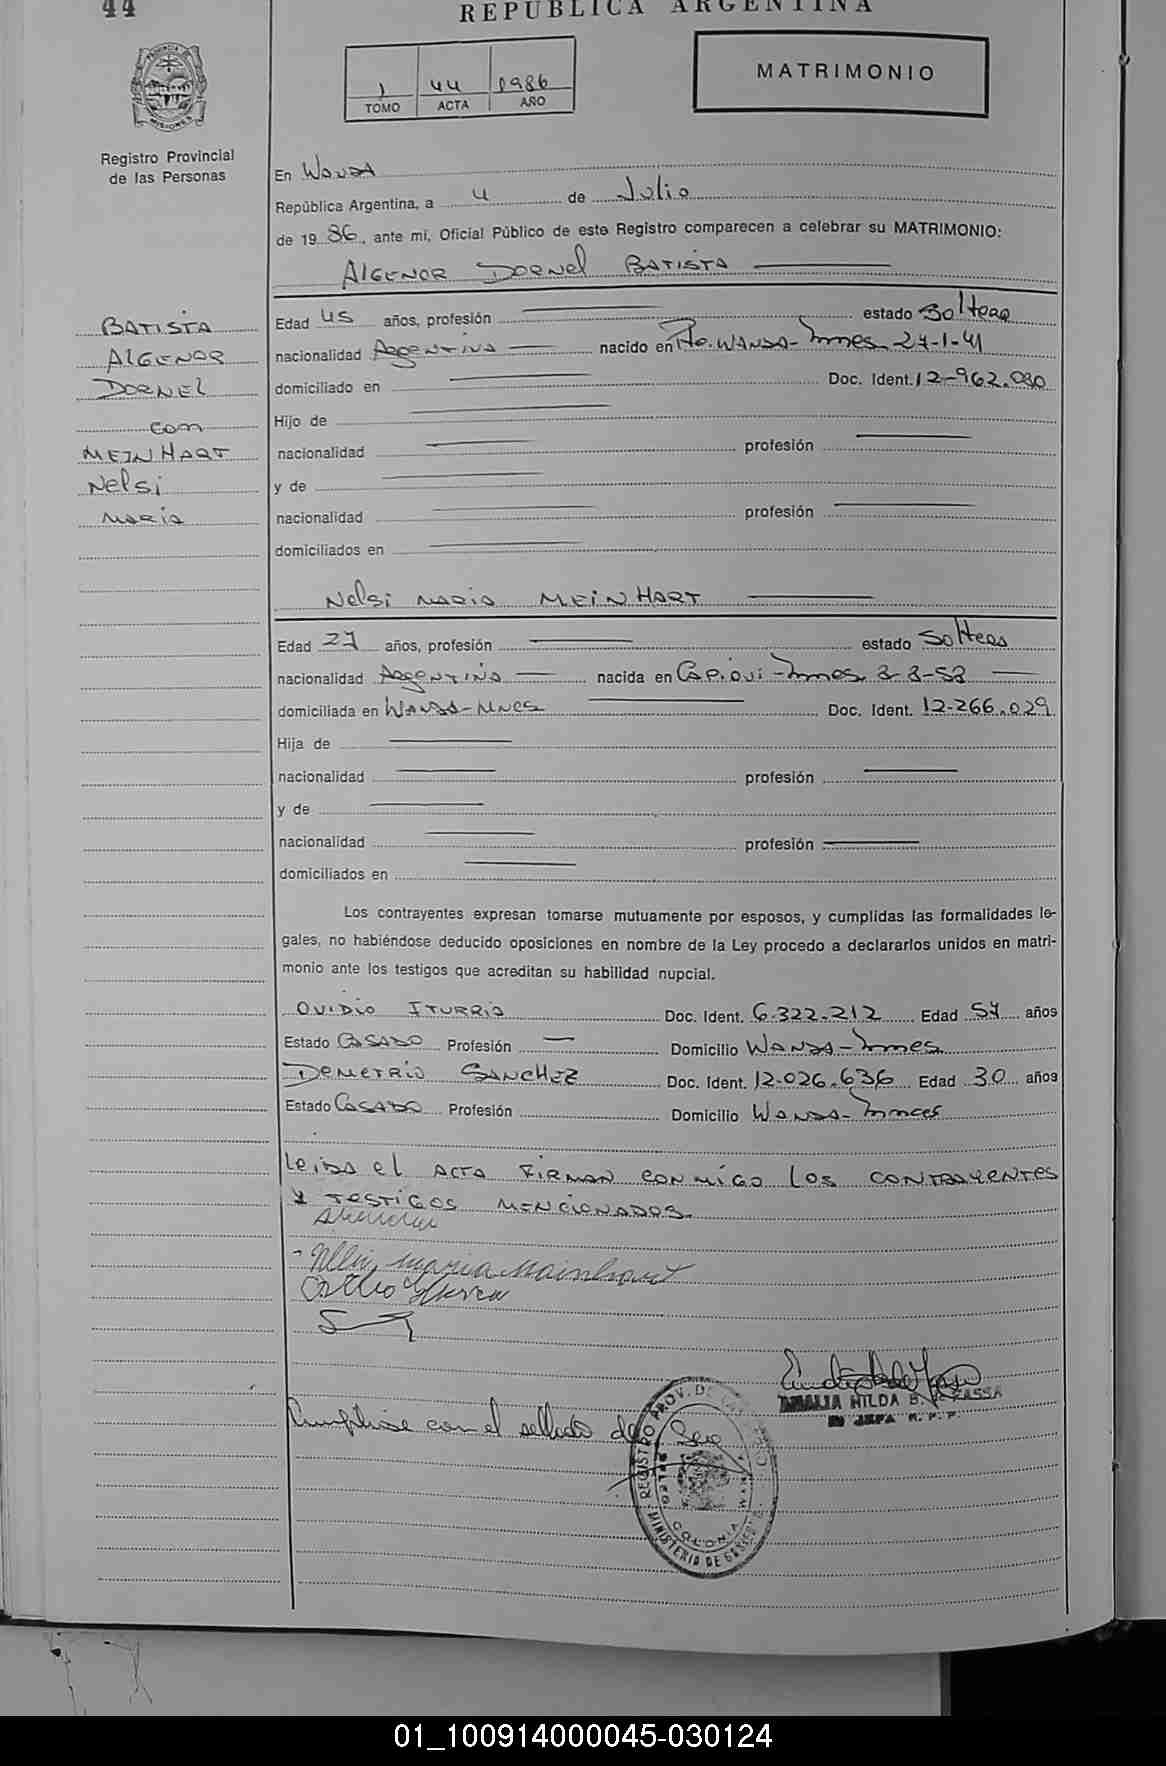 44
REPUBLICA ARGENTINA
1 44 1986
TOMO ACTA AÑO
MATRIMONIO
Registro Provincial
de las Personas
En WANDA
República Argentina, a 4 de Julio
de 1986, ante mí, Oficial Público de este Registro comparecen a celebrar su MATRIMONIO:
ALGENOR DORNEL BATISTA
BATISTA
ALGENOR
DORNEL
con
MEINHART
Nelsi
MARIA
Edad 45 años, profesión estado Soltero
nacionalidad ARGENTINA nacido en Pto. WANDA-Mnes 24-1-41
domiciliado en Doc. Ident. 12-962.090
Hijo de
nacionalidad profesión
y de
nacionalidad profesión
domiciliados en
Nelsi MARIA MEINHART
Edad 27 años, profesión estado Soltera
nacionalidad ARGENTINA nacida en CAPIOVI-Mnes 3-8-58
domiciliada en WANDA-Mnes Doc. Ident. 12-266.029
Hija de
nacionalidad profesión
y de
nacionalidad profesión
domiciliados en
Los contrayentes expresan tomarse mutuamente por esposos, y cumplidas las formalidades le-
gales, no habiéndose deducido oposiciones en nombre de la Ley procedo a declararlos unidos en matri-
monio ante los testigos que acreditan su habilidad nupcial.
OVIDIO ITURRIA Doc. Ident. 6.322.212 Edad 57 años
Estado CASADO Profesión Domicilio WANDA-Mnes
DEMETRIO SANCHEZ Doc. Ident. 12.026.636 Edad 30 años
Estado CASADO Profesión Domicilio WANDA-Mnes
Leida el ACTA FIRMAN CONMIGO LOS CONTRAYENTES
Y TESTIGOS MENCIONADOS.
maria
AMALIA HILDA B.
JEFA R.P.P.
Cumplirse con el sellado de
REGISTRO PROV. DE LAS
COLONIA WANDA
MINISTERIO DE GOBIERNO
01_100914000045-030124